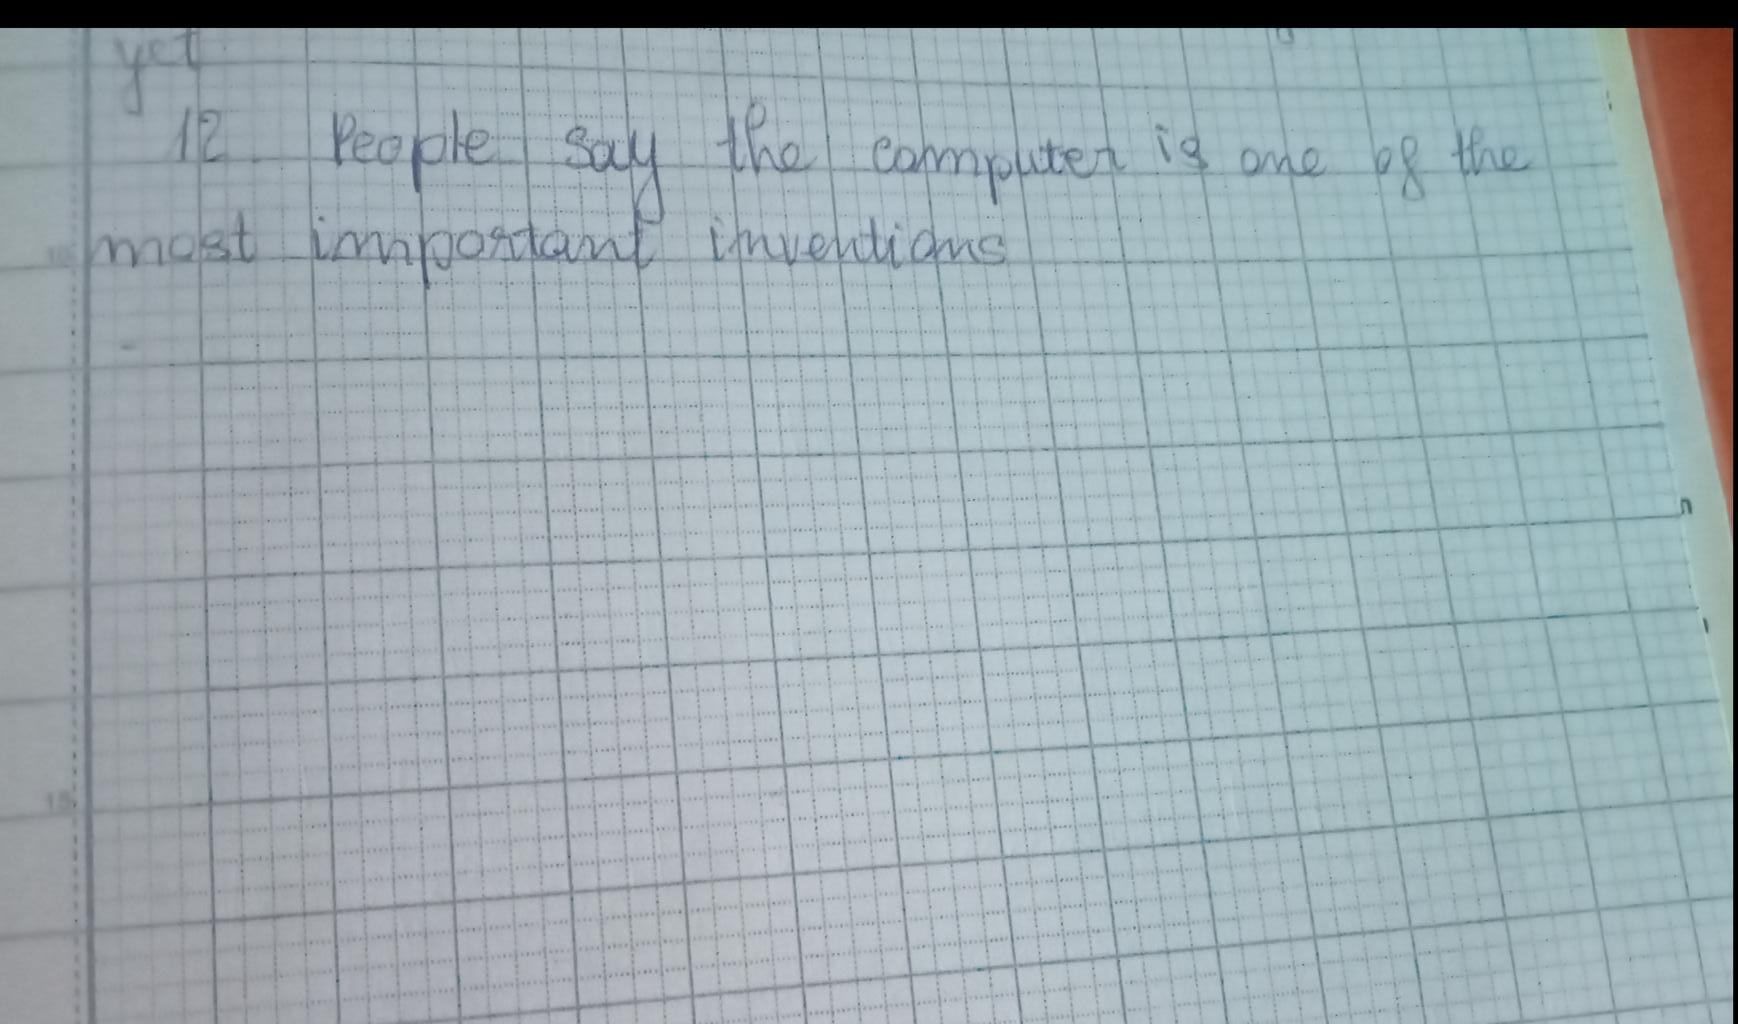 yet
12 People say the computer is one of the
most important inventions
15